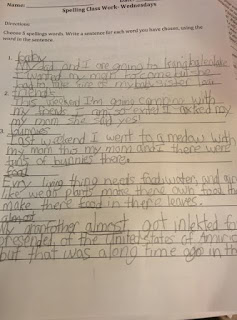 Name:
Spelling Class Work- Wednesdays
Directions:
Choose 5 spellings words. Write a sentence for each word you have chosen, using the
word in the sentence.
1. baby
My and I are going to
I wanted my mom to come but she
had to take care of my baby sister
friends
This weekend I'm going camping with
my friends. I am so I
my mom she said yes!
bunnies
Last weekend I went to a medow with
my mom and there were
tons of bunnies there.
food
Evry living thing needs food, water, and air
like we at plants make there own food they
make there food in there leaves.
almost
My grandfather almost got inlekted for
presendet of the United states of America
but that was a long time ago in the